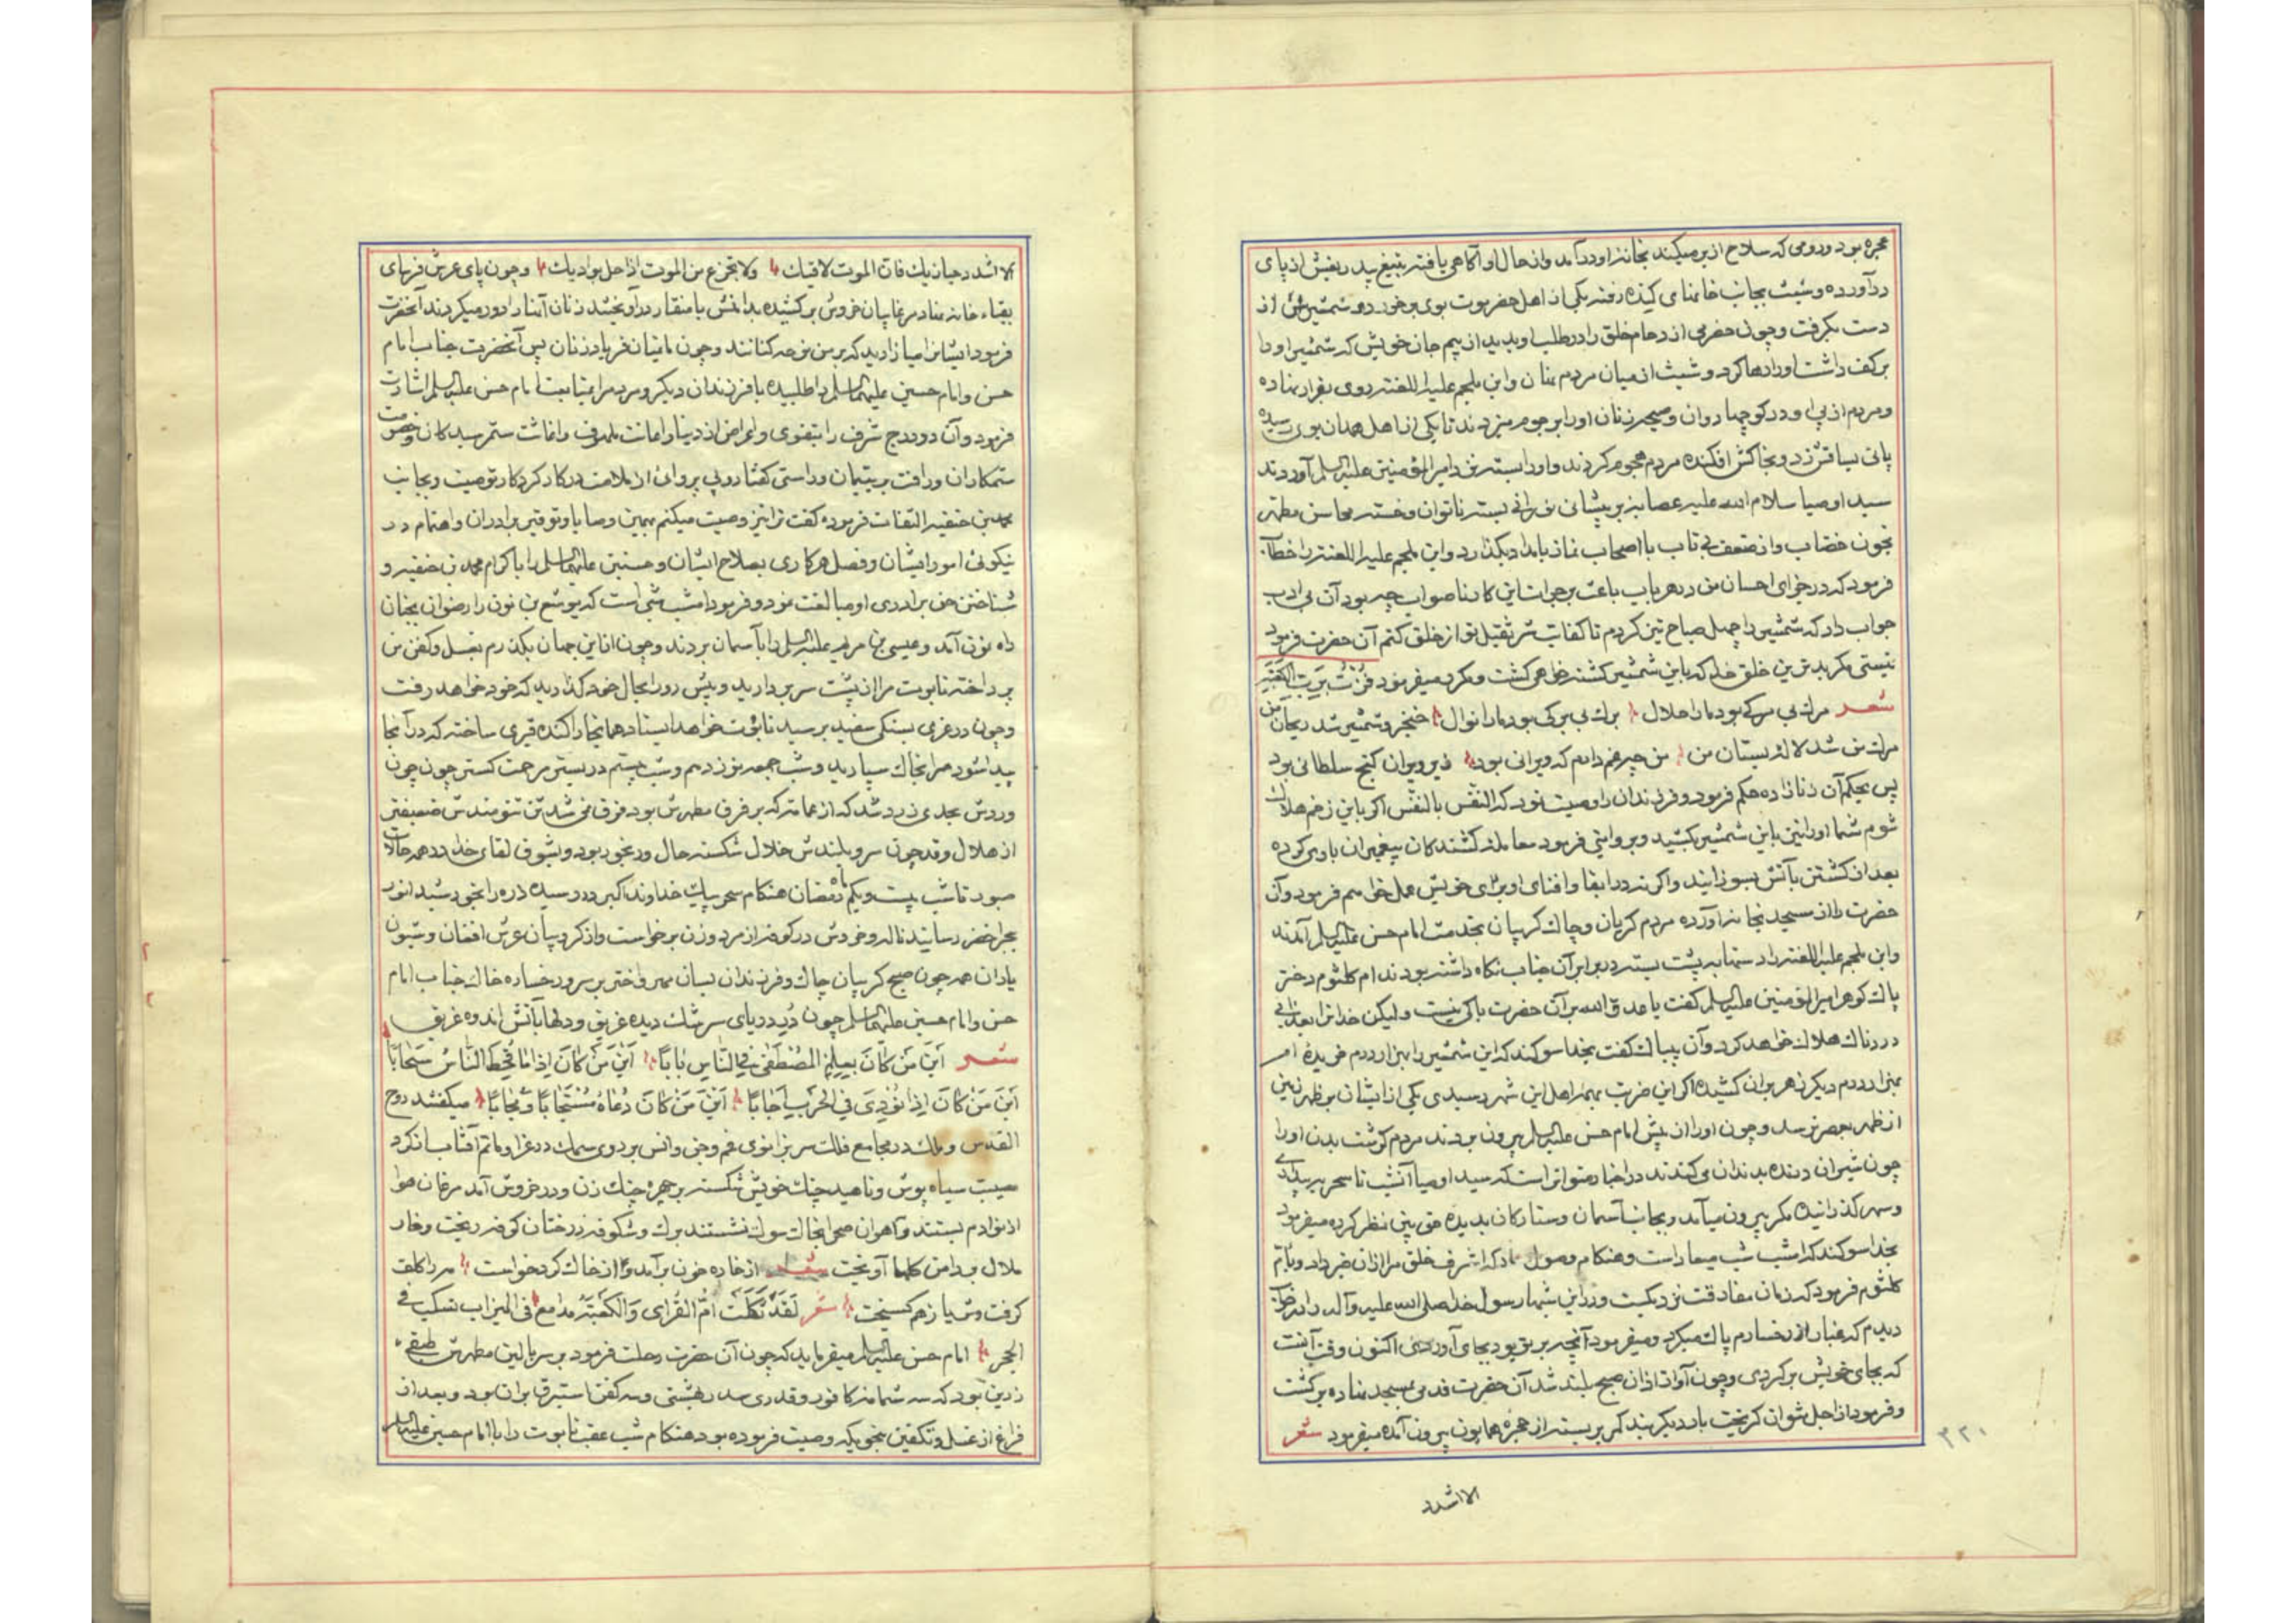 حجره بود و رومی که سلاح از بر میکند بخانه او درآمد و از حال او آگاهی یافته بتیغ بیدریغش از پای
درآورده و شبیث بجانب خانهای کنده رفته یکی از اهل حضرموت بوی برخورد و شمشیرش از
دست بگرفت و چون حضرمی ازدحام خلق را در طلب او بدید از بیم جان خویش که شمشیر او را
بر کف داشت او را رها کرد و شبیث از میان مردم نهان و ابن ملجم علیه اللعنه روی بفرار نهاده
و مردم از پی او در کوچها روان و صبحه زنان او را برجوم میزدند تا یکی از اهل همدان بوی رسیده
پائی بساقش زد و بخاکش افکنده مردم هجوم کردند و او را بسته نزد امیرالمؤمنین علیه السلم آوردند
سید اوصیا سلام الله علیه عصابه بر پیشانی نورانی بسته ناتوان و خسته محاسن مطهر
بخون خضاب و از ضعف بی تاب با اصحاب نماز بامداد بگذارد و ابن ملجم علیه اللعنه را خطاب
فرمود که در جزای احسان من در هر باب باعث بر جرات این کار ناصواب چه بود آن بی ادب
جواب داد که شمشیر را چهل صباح تیز کردم تا کفایت شر ثقیل تو از خلق کنم آن حضرت فرمود
نیستی مگر بدترین خلق خدا که باین شمشیر کشته خواهی گشت و مکرر میفرمود فزت برب الکعبه
شعر مرگ بی مرگی بود ما را حلال برگ بی برگی بود ما را نوال خنجر و شمشیر شد ریحان من
مرگ من شد لاله بستان من من چه غم دارم که ویرانی بود زیر ویران گنج سلطانی بود
پس بحکم آن زنازاده حکم فرمود و فرزندان را وصیت نمود که النفس بالنفس اگر باین زخم هلاک
شوم شما او را نیز باین شمشیر بکشید و بروایتی فرمود معامله کشندکان پیغمبران با وی کرده
بعد از کشتن بآتش بسوزانید و اگر نه در ابقا و افنای او برای خویش عمل خواهم فرمود و آن
حضرت را از مسجد بخانه آورده مردم گریان و چاک گریبان بخدمت امام حسن علیه السلم آمدند
و ابن ملجم علیه اللعنه را دستها به پشت بسته در برابر آن جناب نگاه داشته بودند ام کلثوم دختر
پاک گوهر امیرالمؤمنین علیه السلم گفت یا عدو الله بر آن حضرت باکی نیست ولیکن خدا ترا بعذابی
دردناک هلاک خواهد کرد و آن بیباک گفت بخدا سوگند که این شمشیر را بهزار درم خریده ام
بهزار درم دیگر زهر بران کشیده اگر این ضربت بهمه اهل این شهر رسیدی یکی از ایشان بر ظهر زمین
از ظهر بعصر نرسد و چون او را از پیش امام حسن علیه السلم بیرون بردند مردم گوشت بدن او را
چون شیران درنده بدندان میکندند در اخبار متواتر است که سید اوصیا آنشب تا سحر ببیداری
و سهر گذرانیده مکرر بیرون میآمد و بجانب آسمان و ستارگان بدیده حق بین نظر کرده میفرمود
بخدا سوگند که امشب شب میعاد است و هنگام وصول که اشرف خلق مرا از ان خبر داد و بام
کلثوم فرمود که زمان مفارقت نزدیکست و در این شبها رسول خدا صلی الله علیه و آله را در خواب
دیدم که غبار از رخسارم پاک میکرد و میفرمود آنچه بر تو بود بجای آوردی اکنون وقت آنست
که بجای خویش برگردی و چون آواز اذان صبح بلند شد آن حضرت قدم بمسجد نهاده برگشت
و فرمود از اجل نتوان گریخت بار دیگر بند کمر بر بسته از حجره همایون بیرون آمده میفرمود شعر
الا اشدد
۳۲۰
الا اشدد حیازیمک فان الموت لاقیک ولا تجزع من الموت اذا حل بوادیک و چون پای عرش فرسای
بفناء خانه نهاد مرغابیان خروش برکشیده بدامنش با منقار درآویختند زنان آنها را دور میکردند آنحضرت
فرمود ایشانرا میازارید که بر من نوحه کنانند و چون ماتمیان فریاد زنان پس آنحضرت جناب امام
حسن و امام حسین علیهما السلم را طلبیده با فرزندان دیگر و مردم را بمتابعت امام حسن علیه السلم اشارت
فرمود و آن دو درج شرف را بتقوی و اعراض از دنیا و اعانت ملهوف و اغاثت ستم رسیدگان و خصومت
ستمکاران و رافت بر یتیمان و راستی گفتار و بی پروائی از ملامت در کار کردگار توصیت و بجانب
محمد بن حنفیه التفات فرموده گفت ترا نیز وصیت میکنم بهمین وصایا و توقیر برادران و اهتمام در
نیکوئی امور ایشان و فصل هر کاری بصلاح ایشان و حسنین علیهما السلم را باکرام محمد بن حنفیه و
شناختن حق برادری او مبالغت نمود و فرمود امشب شبی است که یوشع بن نون را رضوان بجنان
راه نمون آمد و عیسی بن مریم علیه السلم را بآسمان بردند و چون از این جهان بگذرم بغسل و کفن من
پرداخته تابوت مرا از پشت سر بردارید و پیش رو را بحال خود گذارید که خود خواهد رفت
و چون در غری بسنگی سفید برسید تابوت خواهد ایستاد همانجا را کنده قبری ساخته که در آنجا
پیدا شود مرا بخاک سپارید و شب جمعه نوزدهم و شب بیستم در بستر مرحمت گستر چون چون
و رویش بحدی زرد شد که از عمامه که بر فرق مطهرش بود فرق نمی شد تن تنومندش ضعیفتر
از هلال و قد چون سرو بلندش خلال شکسته حال و رنجور بود و بشوق لقای خدا در همه حالات
صبور تا شب بیست و یکم ماه رمضان هنگام سحر پیک خداوند اکبر در رسیده ذره را بخورشید انور
ببحر اخضر رسانید ناله و خروش در کوفه از مرد و زن برخواست و از کروبیان عرش افغان و شیون
یاران همه چون صبح گریبان چاک و فرزندان بسان مهر و اختر بر سر و رخساره خاک جناب امام
حسن و امام حسین علیهما السلم چون در در دریای سرشک دیده غریق و دلها بآتش اندوه غریق
شعر این من کان بعلم المصطفی فی الناس بابا این من کان اذا ما قحط الناس سحابا
این من کان اذا نودی فی الحرب اجابا این من کان دعاه مستجابا و مجابا میگفتند روح
القدس و ملک در مجامع فلک سر بزانوی غم و جن و انس بر روی سمک در عزا و ماتم آفتاب از گرد
مصیبت سیاه پوش و ناهید چنگ خویش شکسته بر چهره چنگ زن و در خروش آمد مرغان هوا
از نوا دم بستند و آهوان صحرا بخاک سوک نشستند برگ و شکوفه درختان کوفه ریخت و خار
ملال بدامن گلها آویخت شعر از خاره خون برآمد و از خاک گرد خواست مه را کلف
گرفت و ثریا ز هم گسیخت شعر لقد بکت ام القرای والکعبه مدامع فی المیزاب تسکب فی
الحجر امام حسن علیه السلم میفرماید که چون آن حضرت رحلت فرمود بر سر بالین مطهرش طبقی
زرین بود که سه شمامه کافور و قدری سدر بهشتی و سه کفن استبرق بران بود و بعد از
فراغ از غسل و تکفین بنحویکه وصیت فرموده بود هنگام شب عقب تابوت را با امام حسین علیه السلم